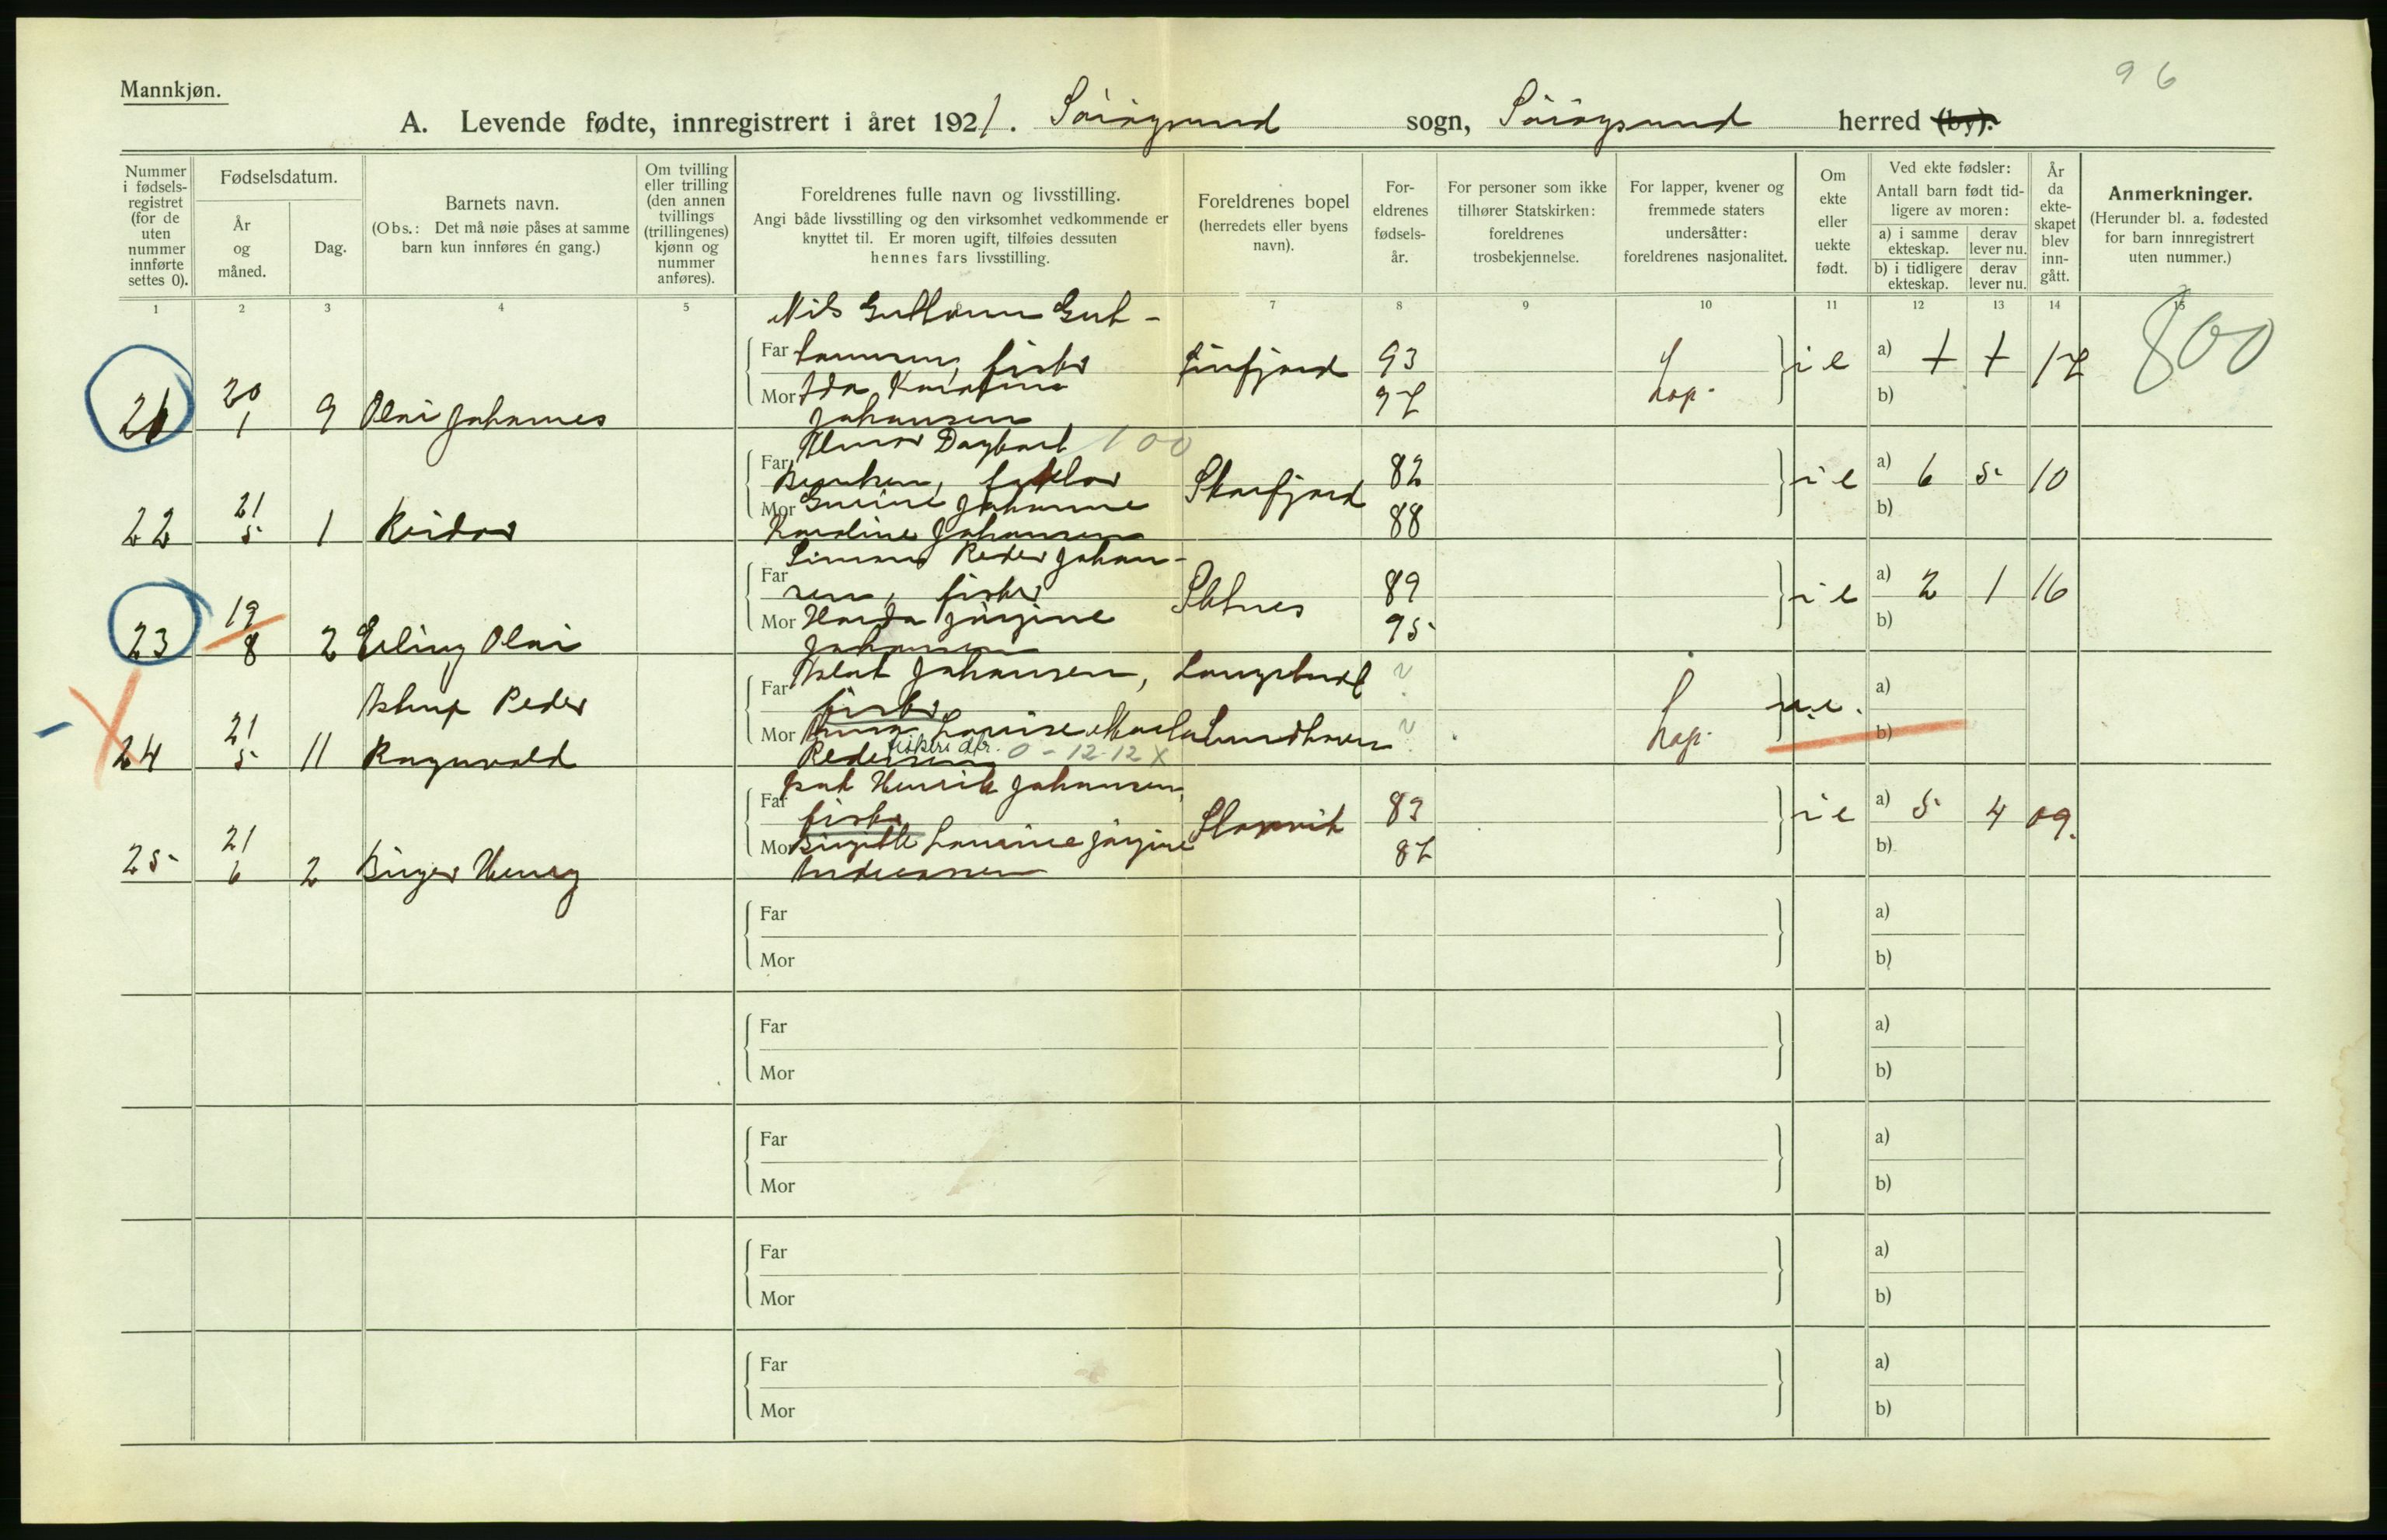 96
Mannkjøn.
A. Levende fødte, innregistrert i året 1921. Sörøysund sogn, Sörøysund herred (by).
Nummer i fødsels-registret (for de uten nummer innførte settes 0).
Fødselsdatum.
År og måned.
Dag.
Barnets navn.
(Obs.: Det må nøie påses at samme barn kun innføres én gang.)
Om tvilling eller trilling (den annen tvillings (trillingenes) kjønn og nummer anføres).
Foreldrenes fulle navn og livsstilling.
Angi både livsstilling og den virksomhet vedkommende er knyttet til. Er moren ugift, tilføies dessuten hennes fars livsstilling.
Foreldrenes bopel (herredets eller byens navn).
For-eldrenes fødsels-år.
For personer som ikke tilhører Statskirken: foreldrenes trosbekjennelse.
For lapper, kvener og fremmede staters undersåtter: foreldrenes nasjonalitet.
Om ekte eller uekte født.
Ved ekte fødsler: Antall barn født tid-ligere av moren:
a) i samme ekteskap.
derav lever nu.
b) i tidligere ekteskap.
derav lever nu.
År da ekte-skapet blev inn-gått.
Anmerkninger.
(Herunder bl. a. fødested for barn innregistrert uten nummer.)
1 2 3 4 5 7 8 9 10 11 12 13 14 15
800
21 20 1 9 Olai Johannes
Far fisker
Mor Ida
Johansen
93
97
lap.
i e
a) 1 1 17
b)
22 21 5 1 Reidar
100
Far
Mor Johanne
Karoline Johansen
Skarfjord
82
88
i e
a) 6 5 10
b)
23 19 8 2 Erling Olai
Peder Johan-
Far sen, fisker
Mor Jørgine
Johansen
89
95
i e
a) 2 1 16
b)
24 21 5 11 Peder
Ragnvald
Far Johansen,
fisker
Mor Louise
Pedersen 0-12-12 X
?
?
lap.
u.e.
a)
b)
25 21 6 2 Birger Henry
Henrik Johansen,
Far fisker
Mor Birgitte Laurine Jørgine
Andreassen
83
87
i e
a) 5 4 09.
b)
Far a)
Mor b)
Far a)
Mor b)
Far a)
Mor b)
Far a)
Mor b)
Far a)
Mor b)